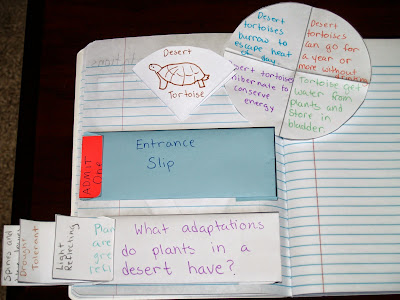 Desert
Tortoise
Desert
tortoises
burrow to
escape heat
of day
Desert
tortoises
an go for
a year or
more without
drinking
sert tortoises
hibernate to
conserve
energy
Tortoise get
water from
plants and
Store in
bladder
Entrance
Slip
ADMIT
One
Spines and
Drought
Tolerant
Light
Reflecting
Plan
are
gre
refl
What adaptations
do plants in a
desert have?